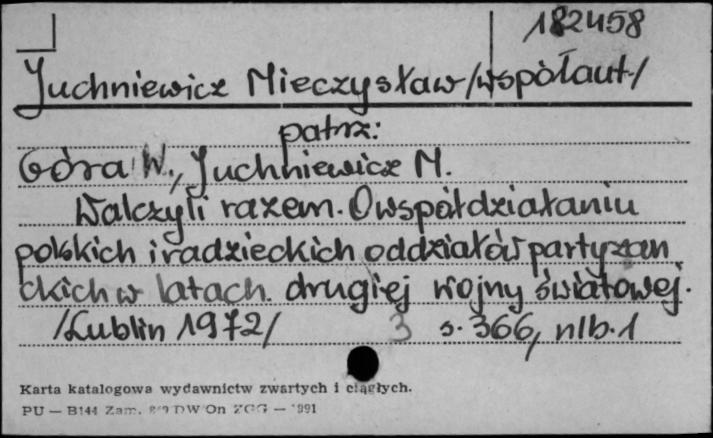 182458
Juchniewicz Mieczysław /współaut/
patrz:
Góra W., Juchniewicz M.
Walczyli razem. O współdziałaniu
polskich i radzieckich oddziałów partyzan
ckich w latach drugiej wojny światowej.
/Lublin 1972/ 3 s. 366, nlb. 1
Karta katalogowa wydawnictw zwartych i ciągłych.
PU — B144 Zam. DW On ZGG — 1991